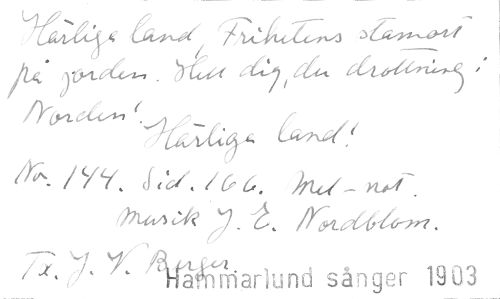 Härliga land, Frihetens stamort
på jorden. Hell dig, du drottning i
Norden!
Härliga land!
No. 144. Sid. 166. Mel-not.
Musik J. E. Nordblom.
Tx. J. V. Berger.
Hammarlund sånger 1903